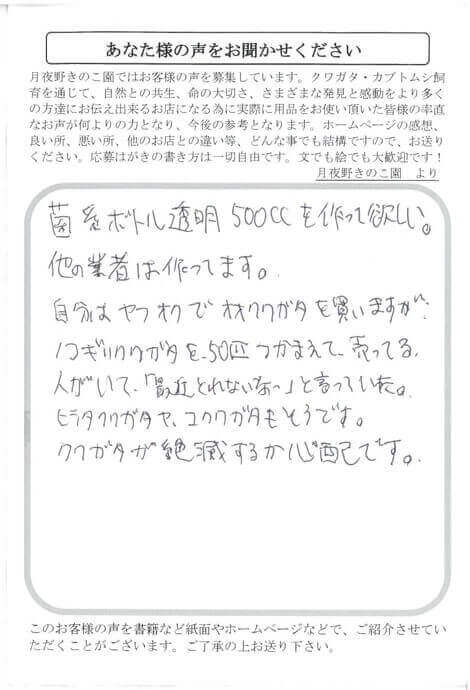 あなた様の声をお聞かせください
月夜野きのこ園ではお客様の声を募集しています。クワガタ・カブトムシ飼
育を通じて、自然との共生、命の大切さ、さまざまな発見と感動をより多く
の方達にお伝え出来るお店になる為に実際に用品をお使い頂いた皆様の率直
なお声が何よりの力となり、今後の参考となります。ホームページの感想、
良い所、悪い所、他のお店との違い等、どんな事でも結構ですので、お送り
ください。応募はがきの書き方は一切自由です。文でも絵でも大歓迎です！
月夜野きのこ園 より
菌糸ボトル透明500ccを作って欲しい。
他の業者は作ってます。
自分はヤフオクでオオクワガタを買いますが、
ノコギリクワガタを、50匹つかまえて、売ってる、
人がいて、「最近とれないなっ」と言っていた。
ヒラタクワガタや、コクワガタもそうです。
クワガタが絶滅するか心配です。
このお客様の声を書籍など紙面やホームページなどで、ご紹介させてい
ただくことがございます。ご了承の上お送り下さい。